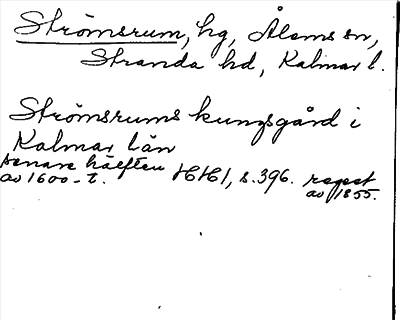 Strömsrum, hg, Ålems sn,
Stranda hd, Kalmar l.
Strömsrums kungsgård i
Kalmar län
senare hälften HH1, s. 396. regest
av 1600-t. av 1855.